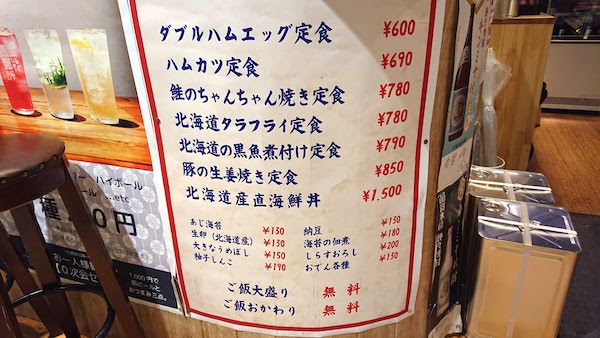 ダブルハムエッグ定食 ¥600
ハムカツ定食 ¥690
鮭のちゃんちゃん焼き定食 ¥780
北海道タラフライ定食 ¥780
北海道の黒魚煮付け定食 ¥790
豚の生姜焼き定食 ¥850
北海道産直海鮮丼 ¥1,500
あじ海苔 ¥130
生卵(北海道産) ¥150
大きなうめぼし ¥150
柚子しんこ ¥190
納豆 ¥150
海苔の佃煮 ¥180
しらすおろし ¥200
おでん各種 ¥150
ご飯大盛り 無料
ご飯おかわり 無料
ハイボール
ール …etc
円
お一人様
【0次会セ
1,000円で
瓶ビールと
おつまみ三点。